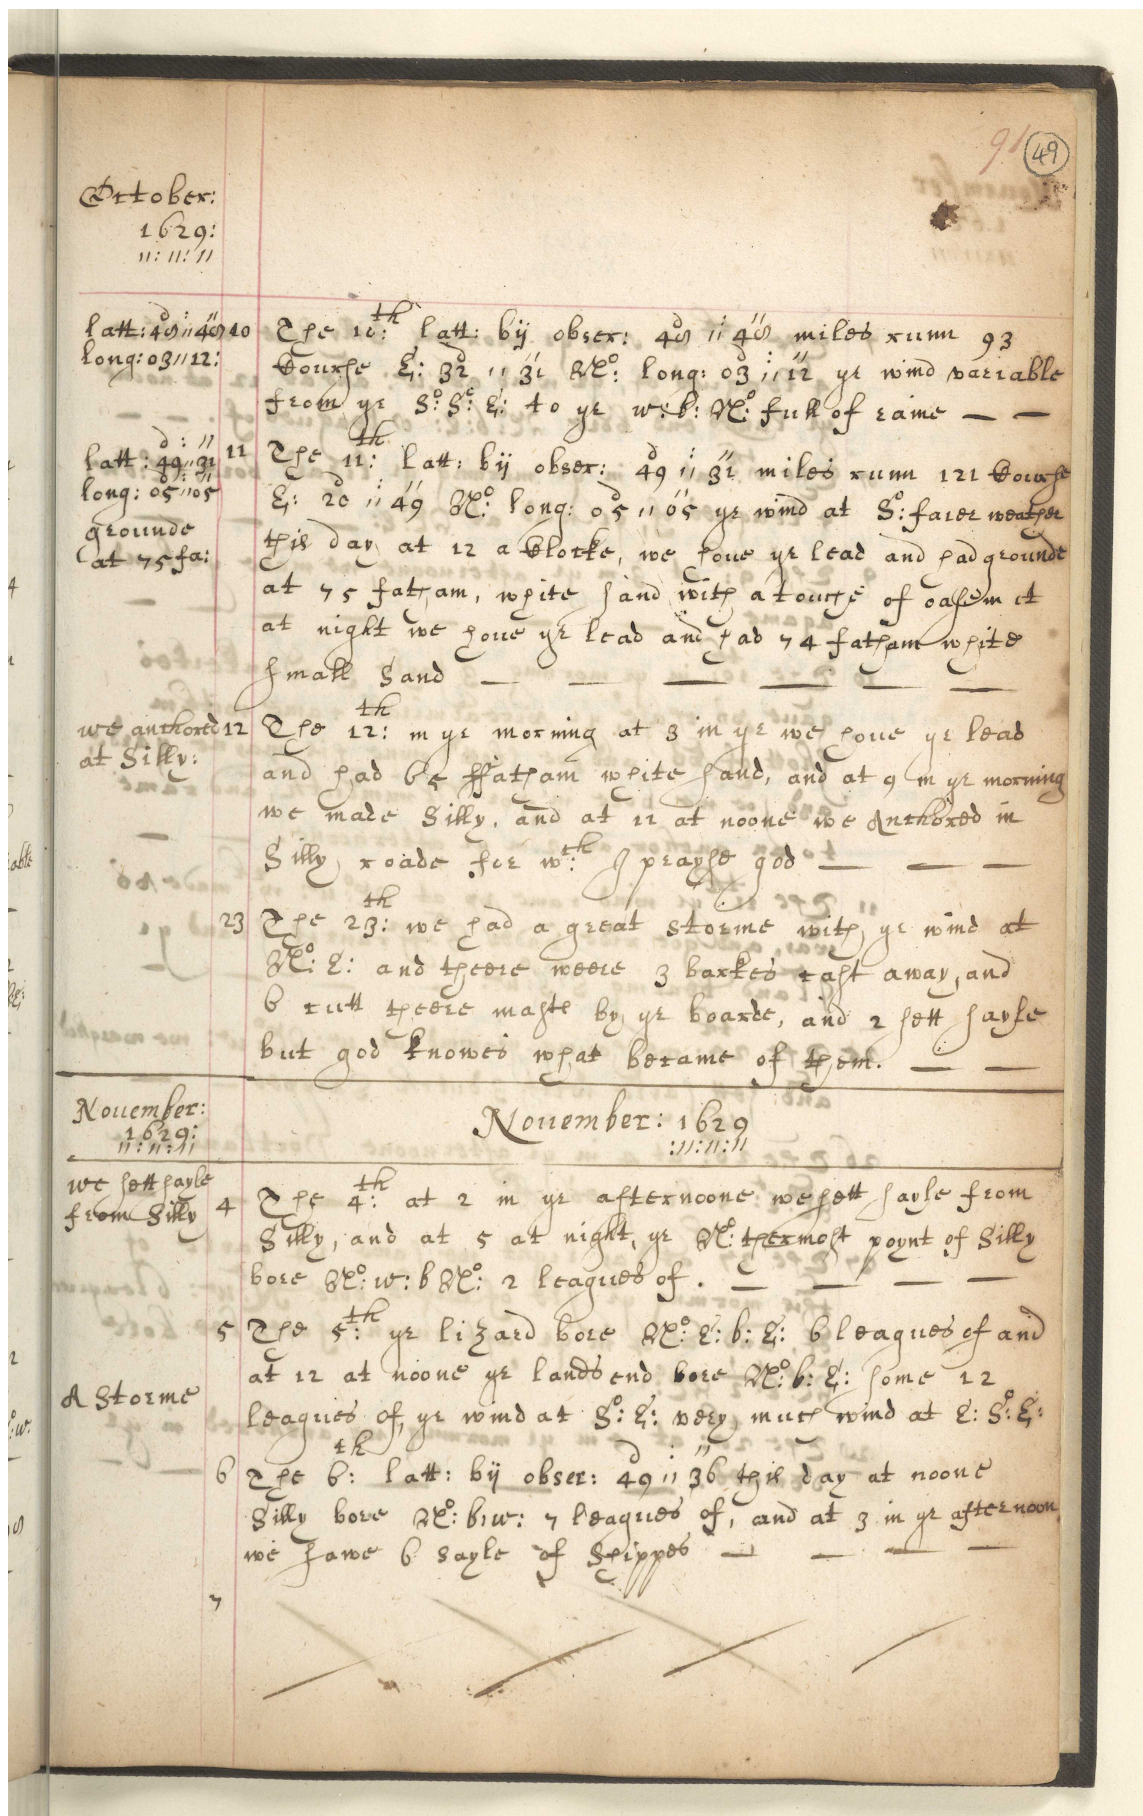 91 49
October:
1629:
latt: 48 48 10 The 10th: latt: by obser: 48 48 miles runn 93
long: 03 12: Course E: 32 31 No: long: 03 12 ye wind variable
from ye So: So: E: to ye w: b: No: full of raine
latt: 49 31 11 The 11th: latt: by obser: 49 31 miles runn 121 Course
long: 05 05 E: 20 49 No: long: 05 05 ye wind at So: faier weather
grounde this day at 12 a Clocke, we houe ye lead and had grounde
at 75 fa: at 75 fatham, white sand with a touche of oasem et
at night we houe ye lead and had 74 fatham white
small Sand
we anchored 12 The 12th: in ye morning at 3 in ye we houe ye lead
at Silly: and had 65 ffatham white sand, and at 9 in ye morning
we made Silly, and at 12 at noone we Anchored in
Silly roade for wth: I prayse god
23 The 23th: we had a great storme with ye wind at
No: E: and theere weere 3 barkes cast away, and
6 cutt theere masts by ye boarde, and 2 sett sayle
but god knowes what became of them.
November: November: 1629
1629:
we sett sayle 4 The 4th: at 2 in ye afternoone we sett sayle from
from Silly Silly, and at 5 at night, ye No: thermost poynt of Silly
bore No: w: b No: 2 leagues of.
5 The 5th: ye lizard bore No: E: b: E: 6 leagues of and
at 12 at noone ye lands end bore No: b: E: some 12
A Storme leagues of, ye wind at So: E: very much wind at E: So: E:
6 The 6th: latt: by obser: 49 36 this day at noone
Silly bore No: b: w: 7 leagues of, and at 3 in ye afternoon
we sawe 6 sayle of Shippes
7